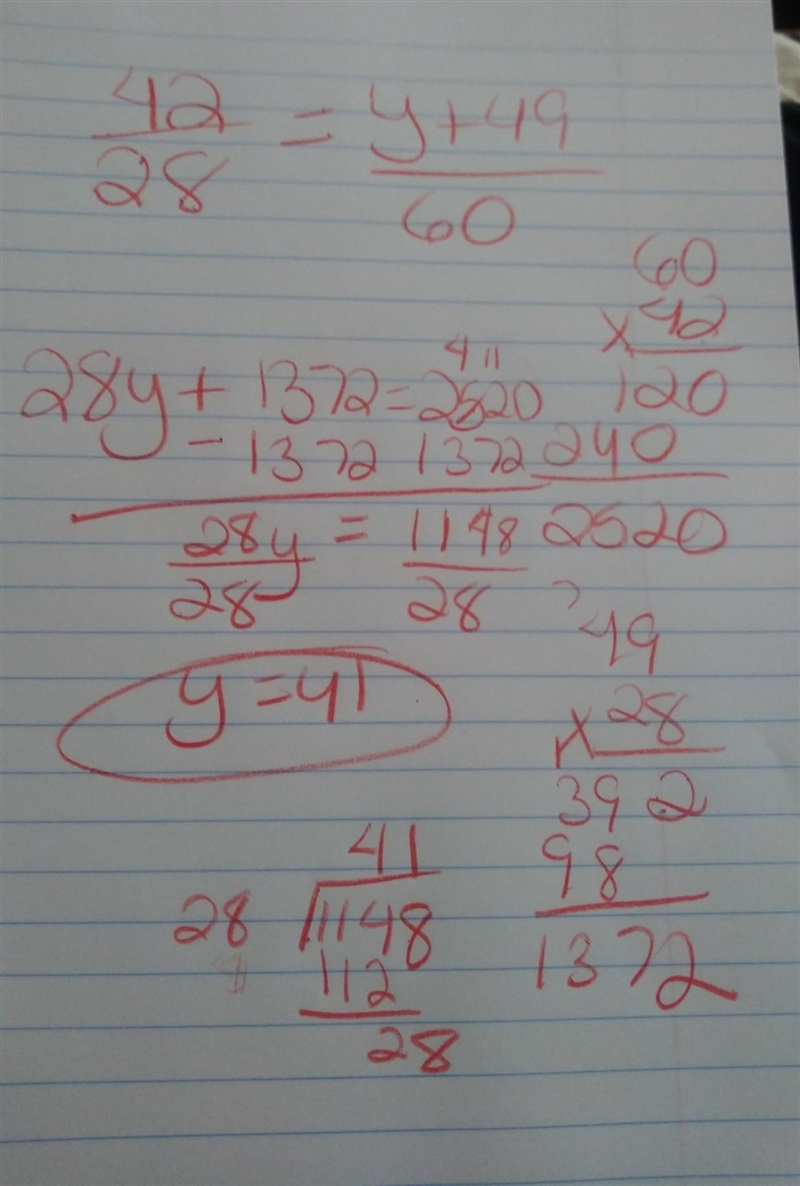 42 = y+49
28 60
60
x 42
4 11
28y + 1372 = 2520 120
- 1372 1372 240
28y = 1148 2520
28 28
49
y = 41 x 28
392
41 98
28 1148 1372
112
28